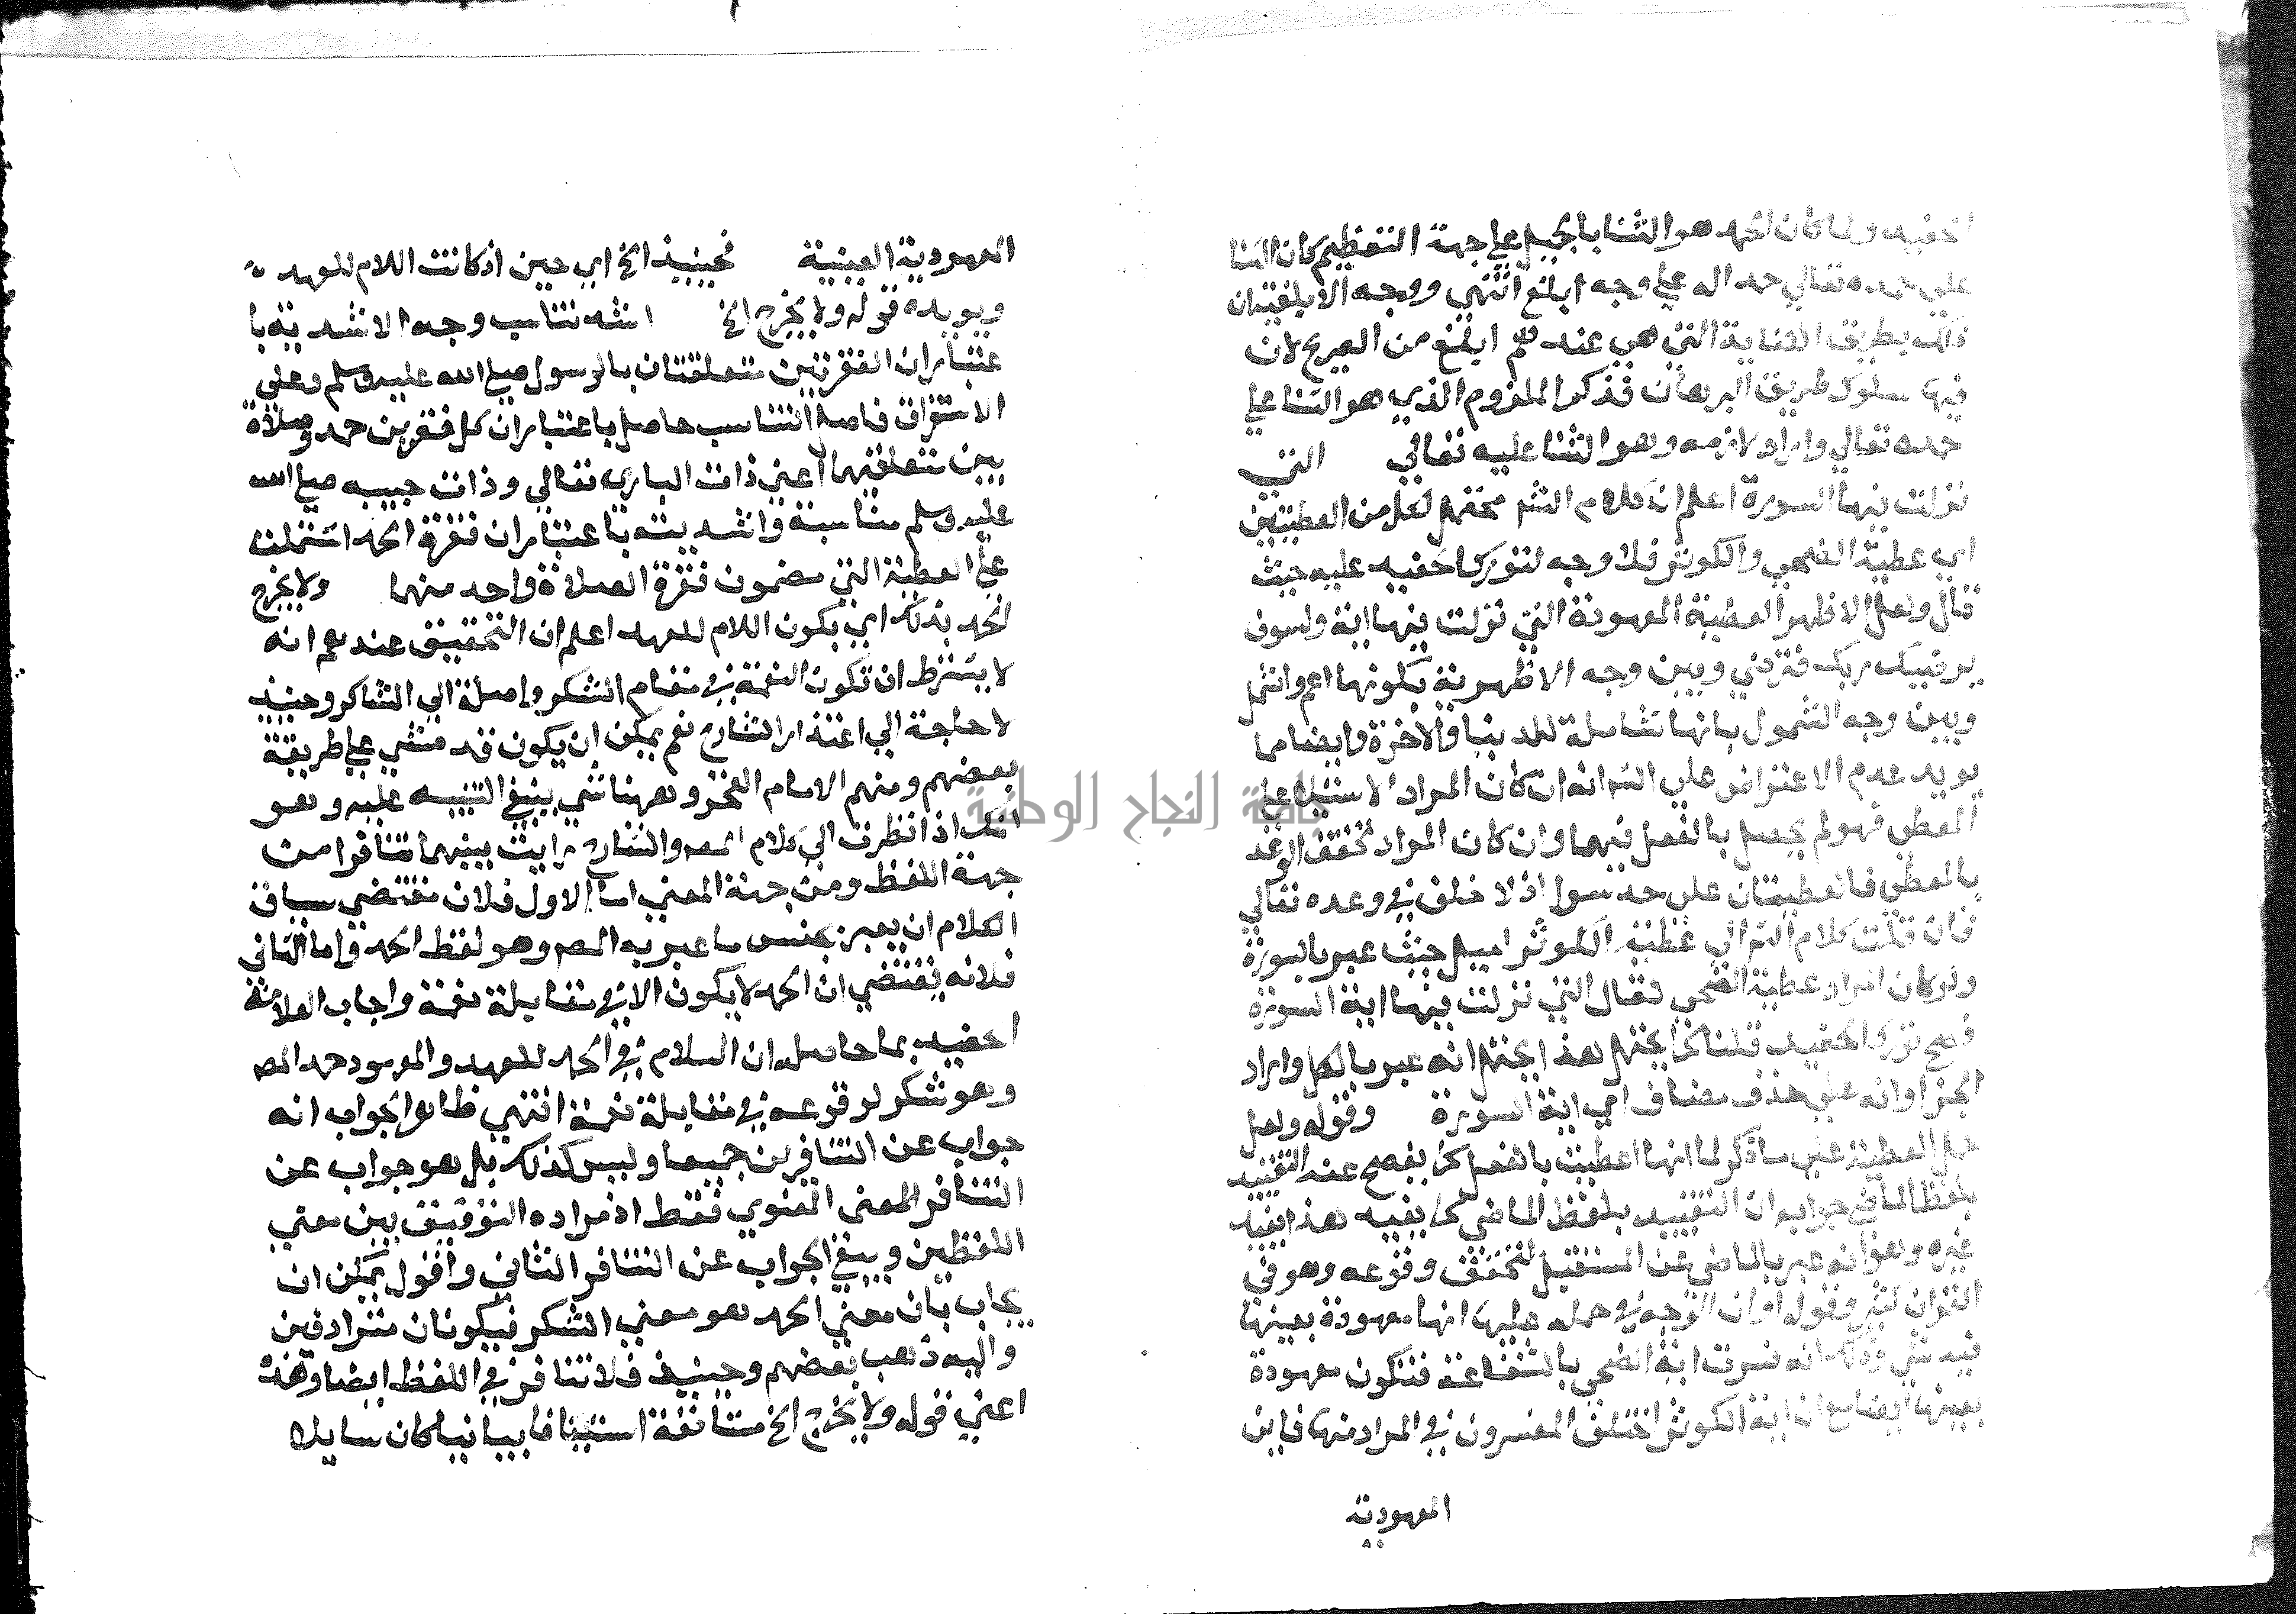 الحفيد ولما كان الحمد هو الثنا بالجميل على جهة التعظيم كان الثنا
على حمده تعالي حمد اله على وجه ابلغ انتهي ووجه الابلغية ان
ذلك بطريق الكناية التي هي عندهم ابلغ من الصريح لان
فيها سلوك طريق البرهان فذكر الملزوم الذي هو الثنا علي
حمده تعالي واراد لازمه وهو الثنا عليه تعالي التي
نزلت فيها السورة اعلم ان كلام الش محتمل لكل من العطيتين
اي عطية الضحي والكوثر فلا وجه لتورك الحفيد عليه حيث
قال ولعل الاظهر العطية المعهودة التي نزلت فيها اية ولسوف
يرضيك ربك فترضي وبين وجه الاظهرية بكونها اعم واشمل
وبين وجه الشمول بانها شاملة للدنيا والاخرة وايضا مما
يويد عدم الاعتراض علي الش انه ان كان المراد الاستيلا علي
المعطي فهو لم يحصل بالفعل فيهما وان كان المراد تحقق الوعد
بالمعطي فالعطيتان علي حد سوا اذ لا خلف في وعده تعالي
فان قلت كلام الش الي عطية الكوثر اميل حيث عبر بالسورة
ولو كان المراد عطية الضحي لقال التي نزلت فيها اية السورة
فصح تورك الحفيد قلنا كما يحتمل هذا يحتمل انه عبر بالكل واراد
الجزا وانه علي حذف مضاف اي اية السورة وقوله ولعل
حمل العطية علي ما ذكر لما انها اعطيت بالفعل كما يفصح عنه التقييد
بلفظ الماضي جوابه ان التقييد بلفظ الماضي كما يفيد هذا يفيد
غيره وهو انه عبر بالماضي عن المستقبل لتحقق وقوعه وهو في
القران كثير وقوله او ان الوجه في حمله عليها انها معهودة بعينها
فيه شي وذلك انه فسرت اية الضحي بالشفاعة فتكون معهودة
بعينها ايضا مع ان اية الكوثر اختلف المفسرون في المراد منها فاين
المعهودية
المعهودية العينية فحينيذ الخ اي حين اذ كانت اللام للعهد
ويويده قوله ولا يخرج الخ اشد تناسب وجه الاشدية با
عتبار ان الفقرتين متعلقتان بالرسول صلي الله عليه وسلم وعلي
الاستغراق فاصل التناسب حاصل باعتبار ان كل فقرة بين حمد وصلاة
بين متعلقيهما اعني ذات الباري تعالي وذات حبيبه صلي الله
عليه وسلم مناسبة واشديته باعتبار ان فقرة الحمد اشتملت
علي العطية التي مضمون فقرة الصلاة واحد منهما ولا يخرج
الحمد بذلك اي بكون اللام للعهد اعلم ان التحقيق عندهم انه
لا يشترط ان تكون النعمة في مقام الشكر واصلة الي الشاكر وحينيذ
لا حاجة الي اعتذار الشارح نعم يمكن ان يكون قد مشي علي طريقة
بعضهم ومنهم الامام الفخر وههنا شي ينبغي التنبيه عليه وهو
انك اذا نظرت الي كلام المص والشارح رايت بينهما تنافرا من
جهة اللفظ ومن جهة المعني اما الاول فلان مقتضي سياق
الكلام ان يعبر بجنس ما عبر به المص وهو لفظ الحمد واما الثاني
فلانه يقتضي ان الحمد لا يكون الا في مقابلة نعمة واجاب العلامة
الحفيد بما حاصله ان اللام في الحمد للعهد والموسود حمد المص
وهو شكر لوقوعه في مقابلة نعمة انتهي ظاهر الجواب انه
جواب عن التنافرين جميعا وليس كذلك بل هو جواب عن
التنافر المعنى المعنوي فقط اذ مراده التوفيق بين معني
اللفظين ويبقي الجواب عن التنافر الثاني واقول يمكن ان
يجاب بان معني الحمد هو معني الشكر فيكونان مترادفين
واليه ذهب بعضهم وحينيذ فلا تنافر في اللفظ ايضا وهذه
اعني قوله ولا يخرج الخ مستانفة استينافا بيانيا كان سايلا
جامعة النجاح الوطنية